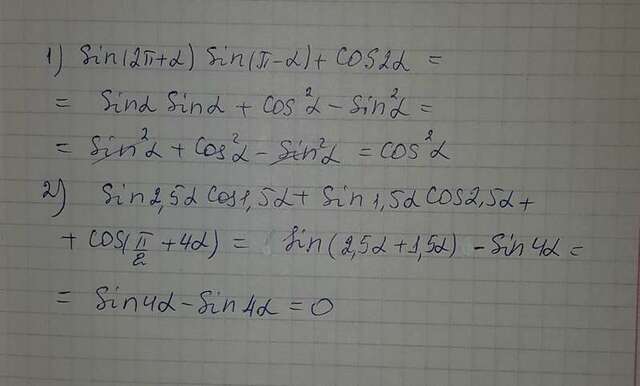 1) Sin(2π+α) Sin(π-α) + cos2α =
= Sinα Sinα + cos²α - Sin²α =
= Sin²α + cos²α - Sin²α = cos²α
2) Sin2,5α cos1,5α + Sin1,5α cos2,5α +
+ cos(π/2 + 4α) = Sin(2,5α+1,5α) - Sin4α =
= Sin4α - Sin4α = 0